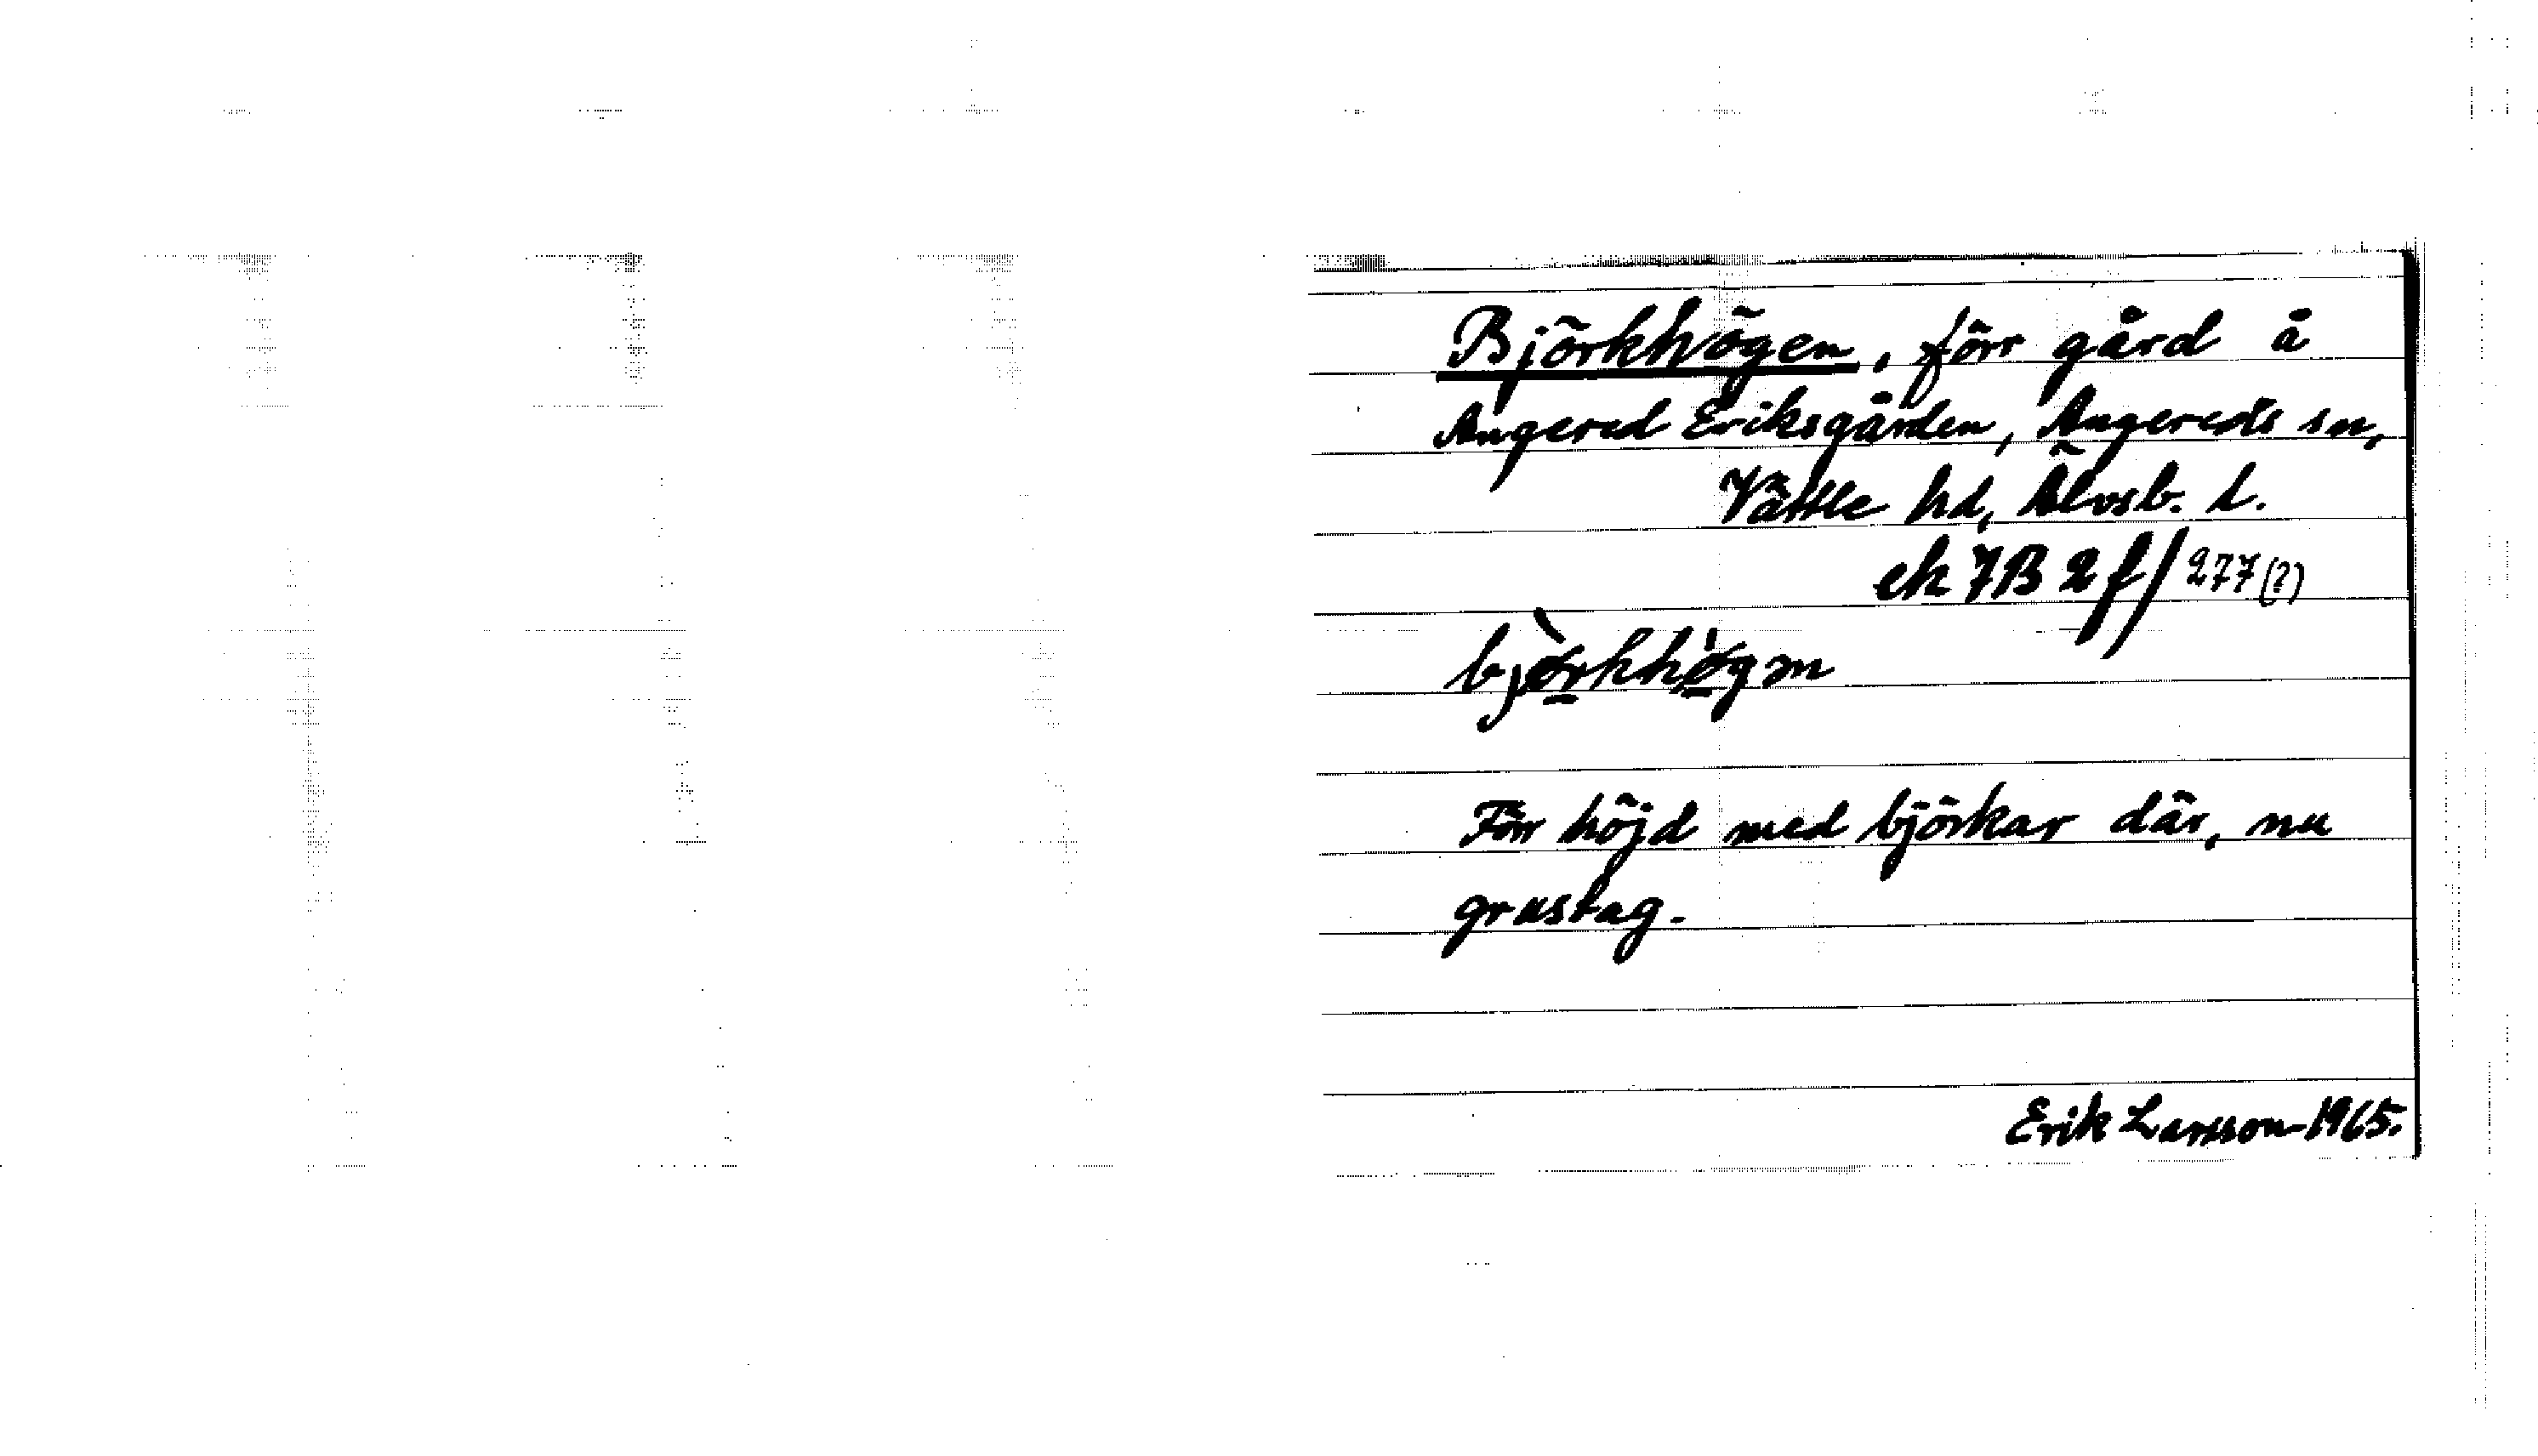 Björkhögen, förr gård å
Angered Eriksgården, Angereds sn,
Vättle hd, Älvsb. l.
ek 7B 2f/277(?)
bjø̀rkhø̀gm
Förr höjd med björkar där, nu
grustag.
Erik Larsson 1965.